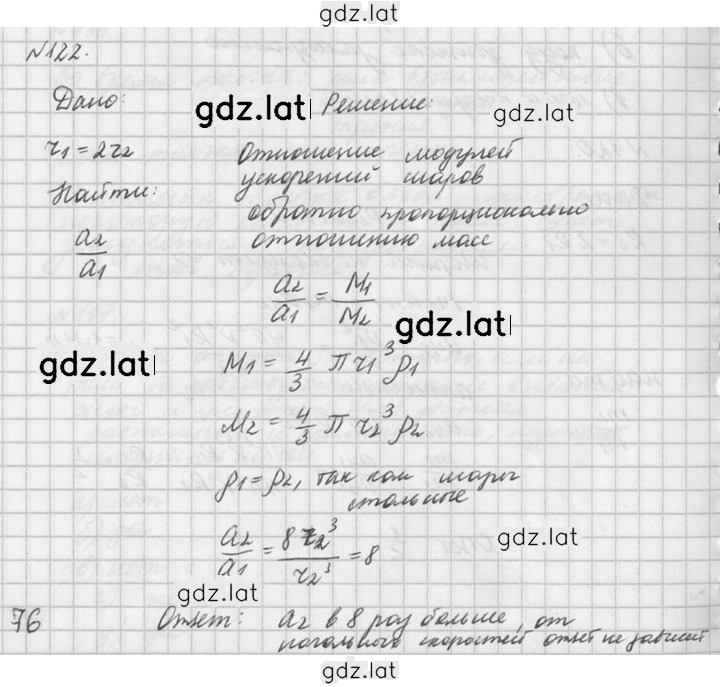 gdz.lat
№122.
Дано:
gdz.lat
Решение:
gdz.lat
r₁ = 2r₂
Отношение модулей
ускорений шаров
Найти:
обратно пропорционально
отношению масс
a₂/a₁
a₂/a₁ = M₁/M₂
gdz.lat
gdz.lat
M₁ = 4/3 π r₁³ ρ₁
M₂ = 4/3 π r₂³ ρ₂
ρ₁ = ρ₂, так как шары
стальные
a₂/a₁ = 8r₂³/r₂³ = 8
gdz.lat
gdz.lat
76
Ответ: a₂ в 8 раз больше, от
начального скоростей ответ не зависит
gdz.lat